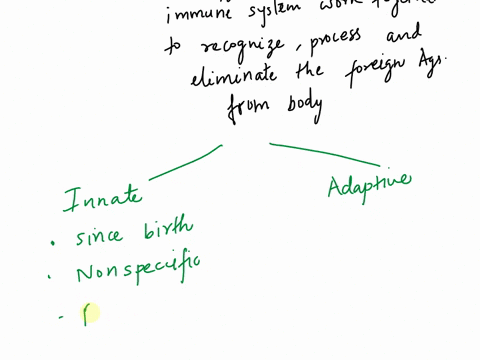 immune system work together
to recognize, process and
eliminate the foreign Ags.
from body
Innate
Adaptive
• since birth
• Nonspecific
•